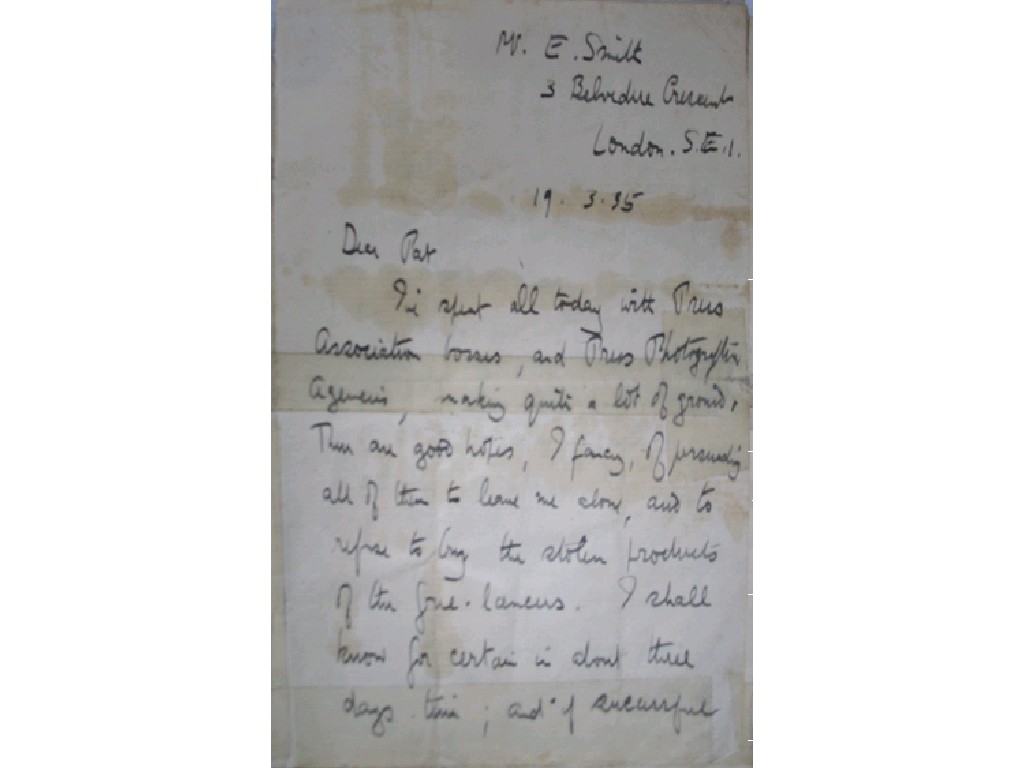 Mr. E. Smith
3 Belvedere Crescent
London. S.E.1.
19. 3. 35
Dear Pat
I've spent all today with Press
Association bosses, and Press Photographic
Agencies, making quite a lot of ground.
There are good hopes, I fancy, of persuading
all of them to leave me alone, and to
refuse to buy the stolen products
of the free-lancers. I shall
know for certain in about three
days time; and if successful